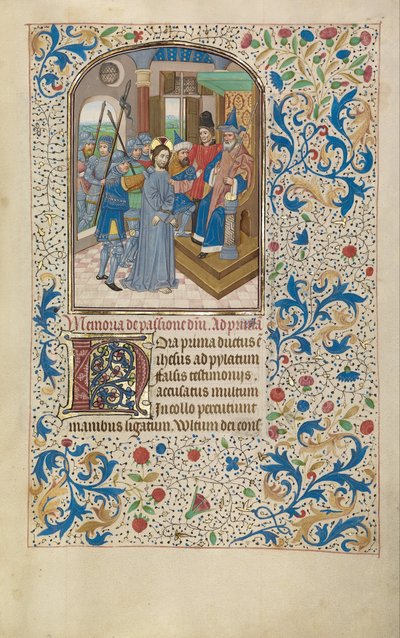 Memoria de passione dni. Ad prima
Hora prima ductus e
ihesus ad pylatum
falsis testimonys
accusatus multum
In collo percutiunt
manibus ligatum. Vltum dei cons